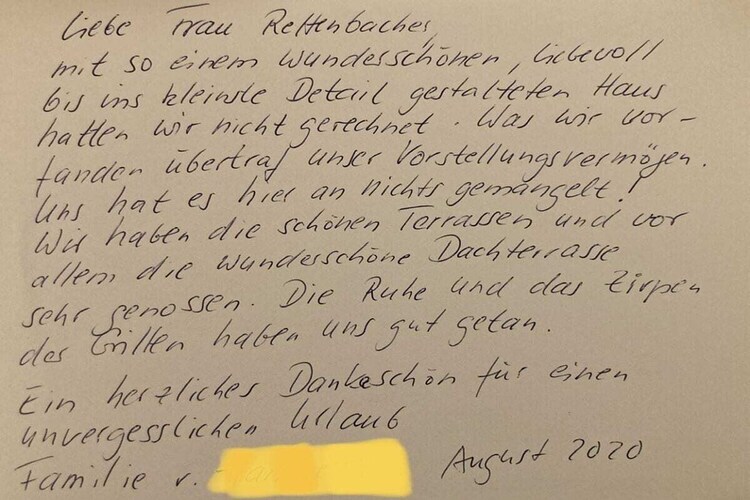 Liebe Frau Rettenbacher,
mit so einem wunderschönen, liebevoll
bis ins kleinste Detail gestalteten Haus
hatten wir nicht gerechnet. Was wir vor-
fanden übertraf unser Vorstellungsvermögen.
Uns hat es hier an nichts gemangelt!
Wir haben die schönen Terrassen und vor
allem die wunderschöne Dachterrasse
sehr genossen. Die Ruhe und das Zirpen
der Grillen haben uns gut getan.
Ein herzliches Dankeschön für einen
unvergesslichen Urlaub
Familie v. August 2020